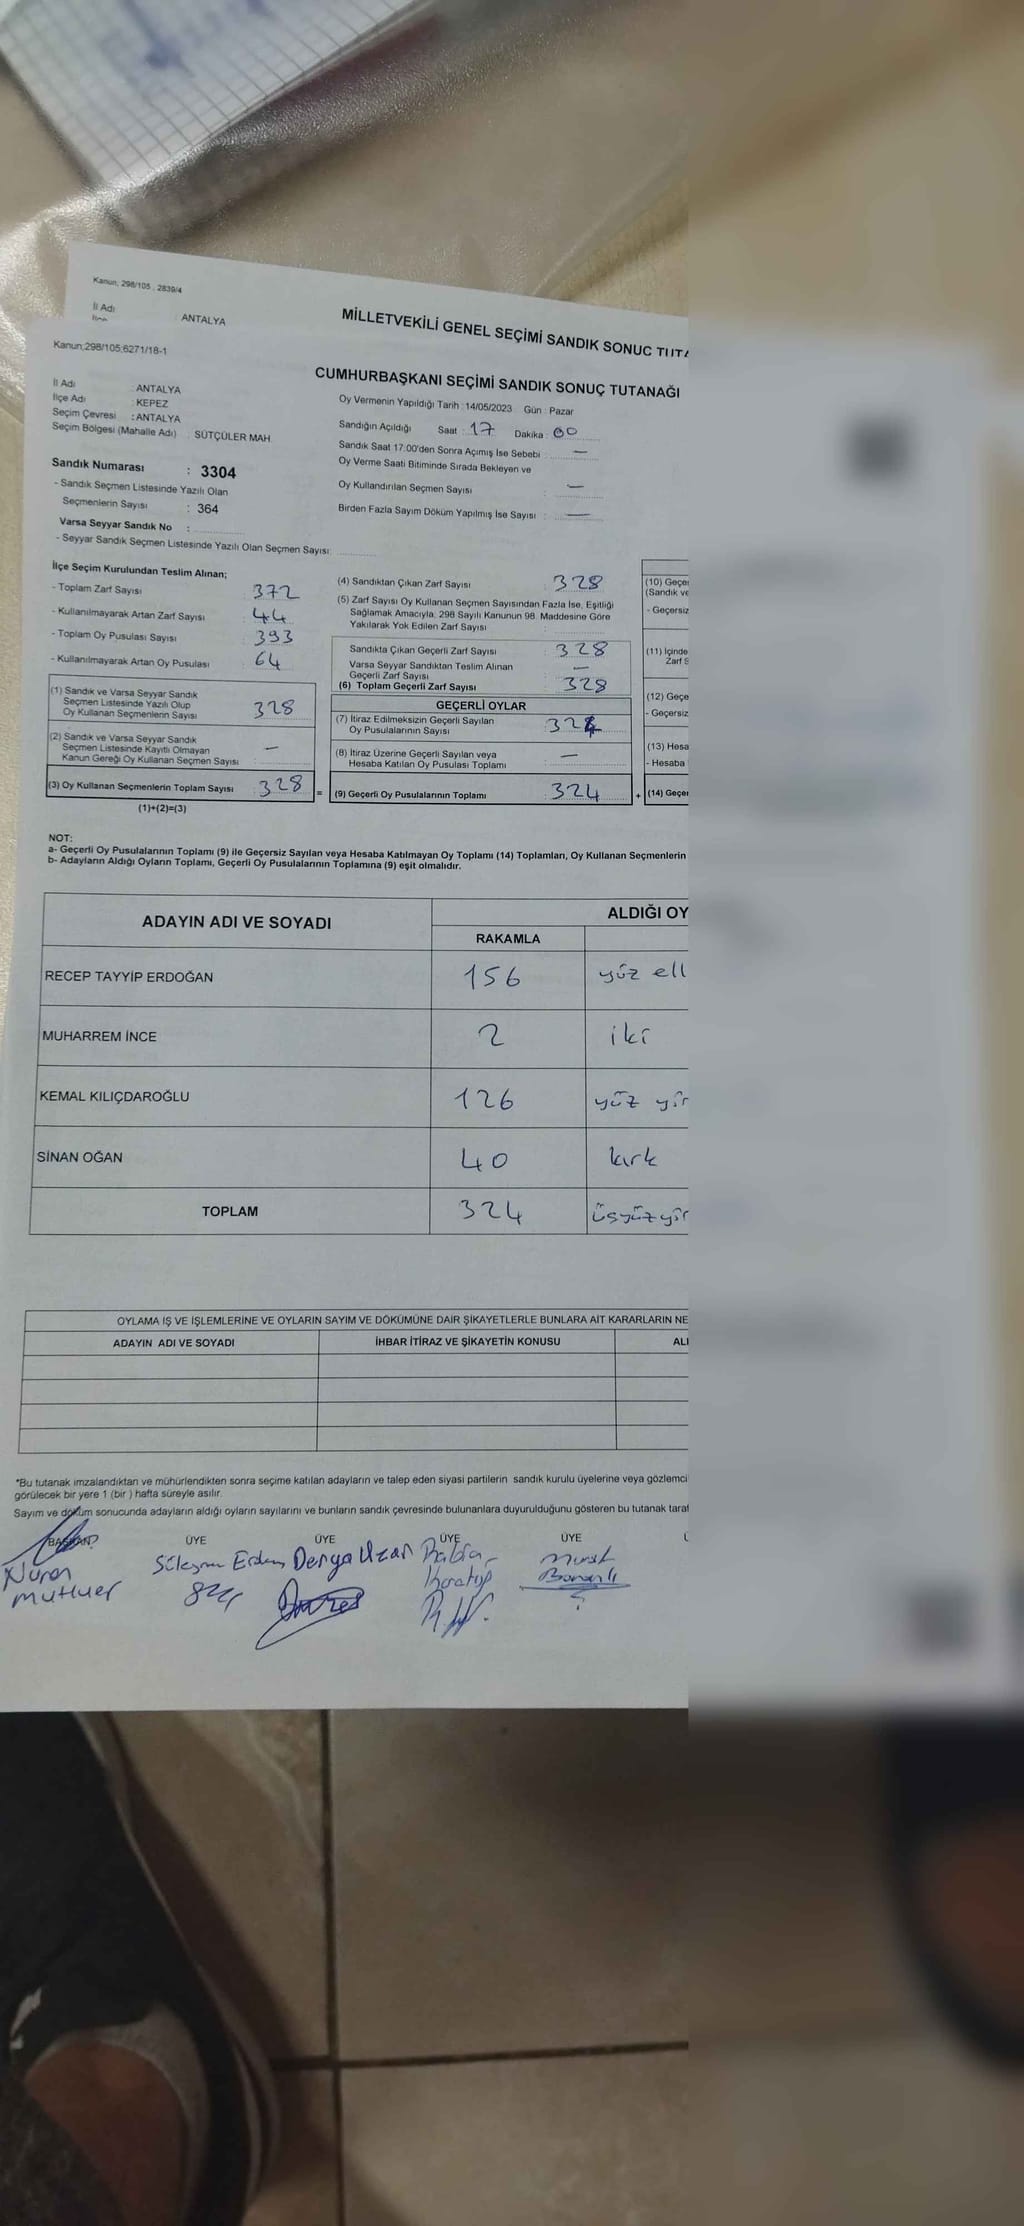 Kanun, 298/105 , 2839/4
İl Adı : ANTALYA
MİLLETVEKİLİ GENEL SEÇİMİ SANDIK SONUÇ TUTA
Kanun;298/105;6271/18-1
CUMHURBAŞKANI SEÇİMİ SANDIK SONUÇ TUTANAĞI
İl Adı : ANTALYA
İlçe Adı : KEPEZ
Seçim Çevresi : ANTALYA
Seçim Bölgesi (Mahalle Adı) : SÜTÇÜLER MAH.
Sandık Numarası : 3304
- Sandık Seçmen Listesinde Yazılı Olan
Seçmenlerin Sayısı : 364
Varsa Seyyar Sandık No :
- Seyyar Sandık Seçmen Listesinde Yazılı Olan Seçmen Sayısı:
Oy Vermenin Yapıldığı Tarih : 14/05/2023 Gün : Pazar
Sandığın Açıldığı Saat : 17 Dakika : 00
Sandık Saat 17:00'den Sonra Açımış İse Sebebi : —
Oy Verme Saati Bitiminde Sırada Bekleyen ve
Oy Kullandırılan Seçmen Sayısı : —
Birden Fazla Sayım Döküm Yapılmış İse Sayısı : —
İlçe Seçim Kurulundan Teslim Alınan;
- Toplam Zarf Sayısı : 372
- Kullanılmayarak Artan Zarf Sayısı : 44
- Toplam Oy Pusulası Sayısı : 393
- Kullanılmayarak Artan Oy Pusulası : 64
(1) Sandık ve Varsa Seyyar Sandık
Seçmen Listesinde Yazılı Olup
Oy Kullanan Seçmenlerin Sayısı : 328
(2) Sandık ve Varsa Seyyar Sandık
Seçmen Listesinde Kayıtlı Olmayan
Kanun Gereği Oy Kullanan Seçmen Sayısı : —
(3) Oy Kullanan Seçmenlerin Toplam Sayısı : 328 =
(1)+(2)=(3)
(4) Sandıktan Çıkan Zarf Sayısı : 328
(5) Zarf Sayısı Oy Kullanan Seçmen Sayısından Fazla İse, Eşitliği
Sağlamak Amacıyla, 298 Sayılı Kanunun 98. Maddesine Göre
Yakılarak Yok Edilen Zarf Sayısı :
Sandıkta Çıkan Geçerli Zarf Sayısı : 328
Varsa Seyyar Sandıktan Teslim Alınan
Geçerli Zarf Sayısı : —
(6) Toplam Geçerli Zarf Sayısı : 328
GEÇERLİ OYLAR
(7) İtiraz Edilmeksizin Geçerli Sayılan
Oy Pusulalarının Sayısı : 324
(8) İtiraz Üzerine Geçerli Sayılan veya
Hesaba Katılan Oy Pusulası Toplamı : —
(9) Geçerli Oy Pusulalarının Toplamı : 324 +
(10) Geçe
(Sandık ve
- Geçersiz
(11) İçinde
Zarf S
(12) Geçe
- Geçersiz
(13) Hesa
- Hesaba
(14) Geçer
NOT:
a- Geçerli Oy Pusulalarının Toplamı (9) ile Geçersiz Sayılan veya Hesaba Katılmayan Oy Toplamı (14) Toplamları, Oy Kullanan Seçmenlerin
b- Adayların Aldığı Oyların Toplamı, Geçerli Oy Pusulalarının Toplamına (9) eşit olmalıdır.
ADAYIN ADI VE SOYADI ALDIĞI OY
RAKAMLA
RECEP TAYYİP ERDOĞAN 156 yüz ell
MUHARREM İNCE 2 iki
KEMAL KILIÇDAROĞLU 126 yüz yir
SİNAN OĞAN 40 kırk
TOPLAM 324 üçyüzyir
OYLAMA İŞ VE İŞLEMLERİNE VE OYLARIN SAYIM VE DÖKÜMÜNE DAİR ŞİKAYETLERLE BUNLARA AİT KARARLARIN NE
ADAYIN ADI VE SOYADI İHBAR İTİRAZ VE ŞİKAYETİN KONUSU AL
*Bu tutanak imzalandıktan ve mühürlendikten sonra seçime katılan adayların ve talep eden siyasi partilerin sandık kurulu üyelerine veya gözlemci
görülecek bir yere 1 (bir ) hafta süreyle asılır.
Sayım ve döküm sonucunda adayların aldığı oyların sayılarını ve bunların sandık çevresinde bulunanlara duyurulduğunu gösteren bu tutanak taraf
BAŞKAN ÜYE ÜYE ÜYE ÜYE
Nuran Süleyman Erdem Derya Uzar Rabia Murat
Mutluer